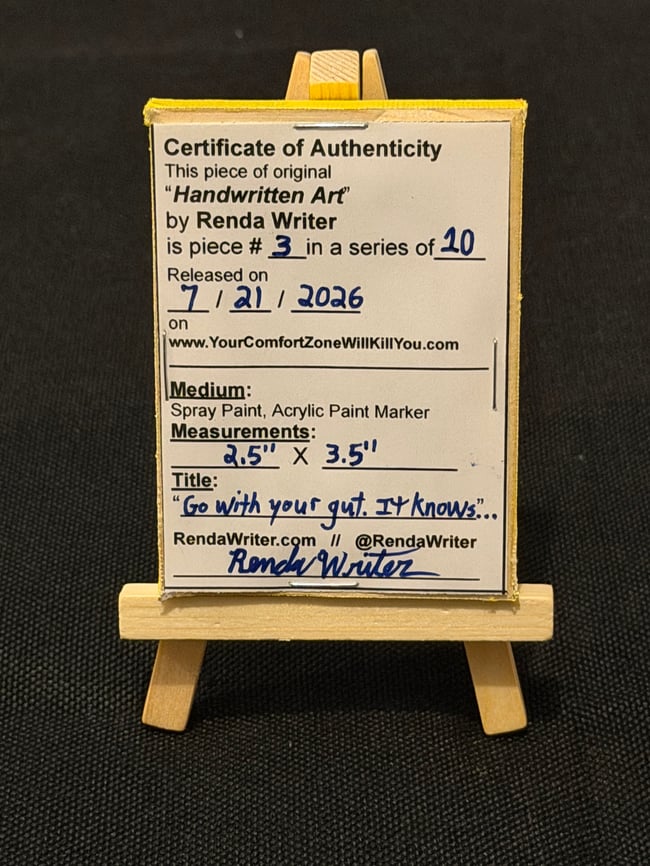 Certificate of Authenticity
This piece of original
"Handwritten Art"
by Renda Writer
is piece # 3 in a series of 10
Released on
7 / 21 / 2026
on
www.YourComfortZoneWillKillYou.com
Medium:
Spray Paint, Acrylic Paint Marker
Measurements:
2.5" X 3.5"
Title:
"Go with your gut. It knows"...
RendaWriter.com // @RendaWriter
Renda Writer